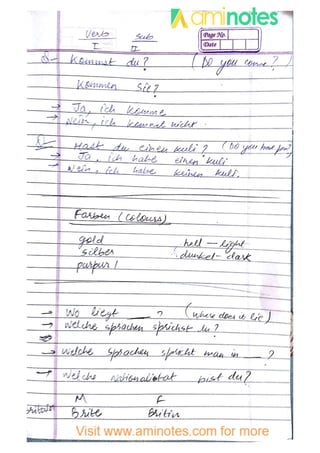 aminotes
Verb Sub
I II
Page No.
Date
Q- Kommst du? (Do you come?)
Kommen Sie?
→ Ja, ich komme
→ Nein, ich komme nicht.
Q- Hast du einen kuli? (Do you have pen)
→ Ja, ich habe einen kuli
→ Nein, ich habe keinen kuli.
Farben (Colours)
gold hell – light
silber dunkel – dark
purpur
→ Wo liegt ___ ? (where does it lie)
→ Welche sprachen sprichst du?
→ Welche sprachen spricht man in ___ ?
→ Welche nationalitat bist du?
M F
Britain Brite Britin
Visit www.aminotes.com for more